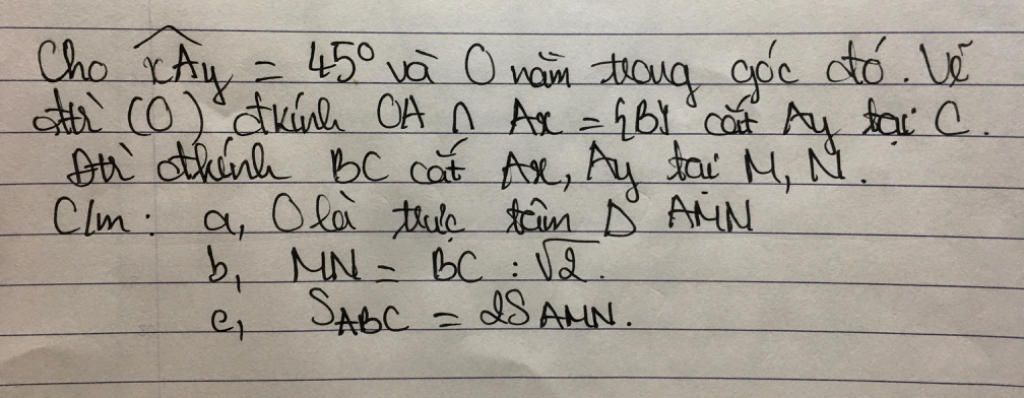 Cho xAy = 45° và O nằm trong góc đó. Vẽ
đtr (O) đkính OA ∩ Ax = {B} cắt Ay tại C.
Đtr đkính BC cắt Ax, Ay tại M, N.
C/m: a, O là trực tâm Δ AMN
b, MN = BC : √2.
c, SABC = 2SAMN.